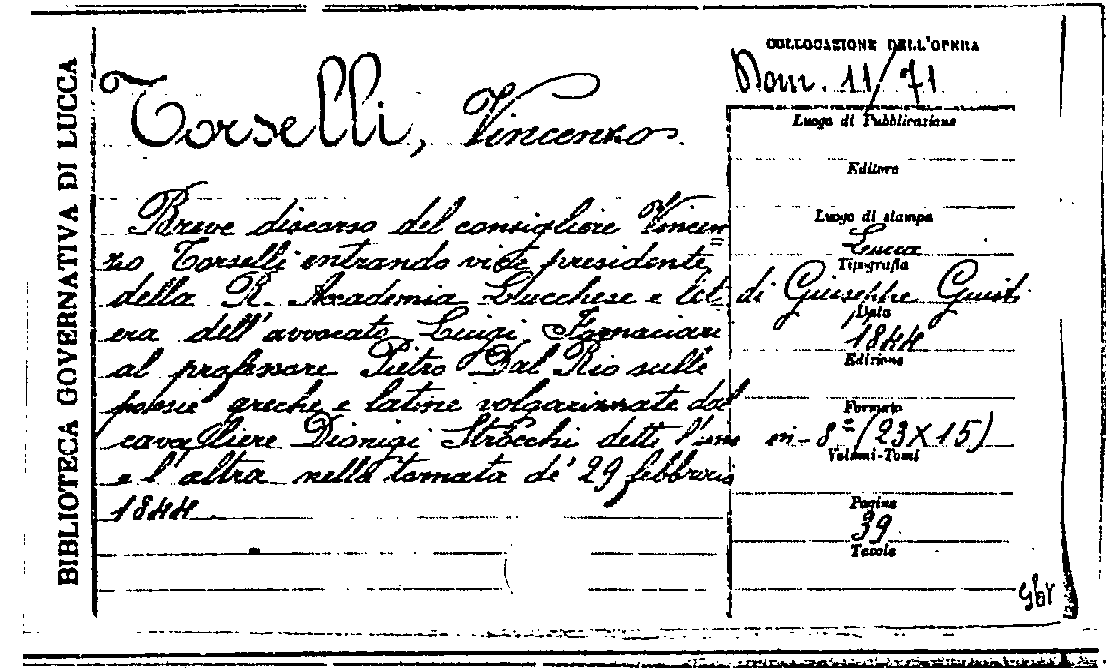 BIBLIOTECA GOVERNATIVA DI LUCCA
COLLOCAZIONE DELL'OPERA
Dom. 11/71
Torselli, Vincenzo.
Luogo di Pubblicazione
Editore
Breve discorso del consigliere Vincen
Luogo di stampa
Lucca
zo Torselli entrando vice presidente
Tipografia
della R. Accademia Lucchese e let
di Giuseppe Giusti
era dell'avvocato Luigi Fornaciari
Data
1844
al professore Pietro Dal Rio sulle
Edizione
poesie greche e latine volgarizzate dal
Formato
cavagliere Dionigi Strocchi dette l'una
in-8° (23X15)
Volumi-Tomi
e l'altra nella tornata de' 29 febbraio
1844
Pagine
39
Tavole